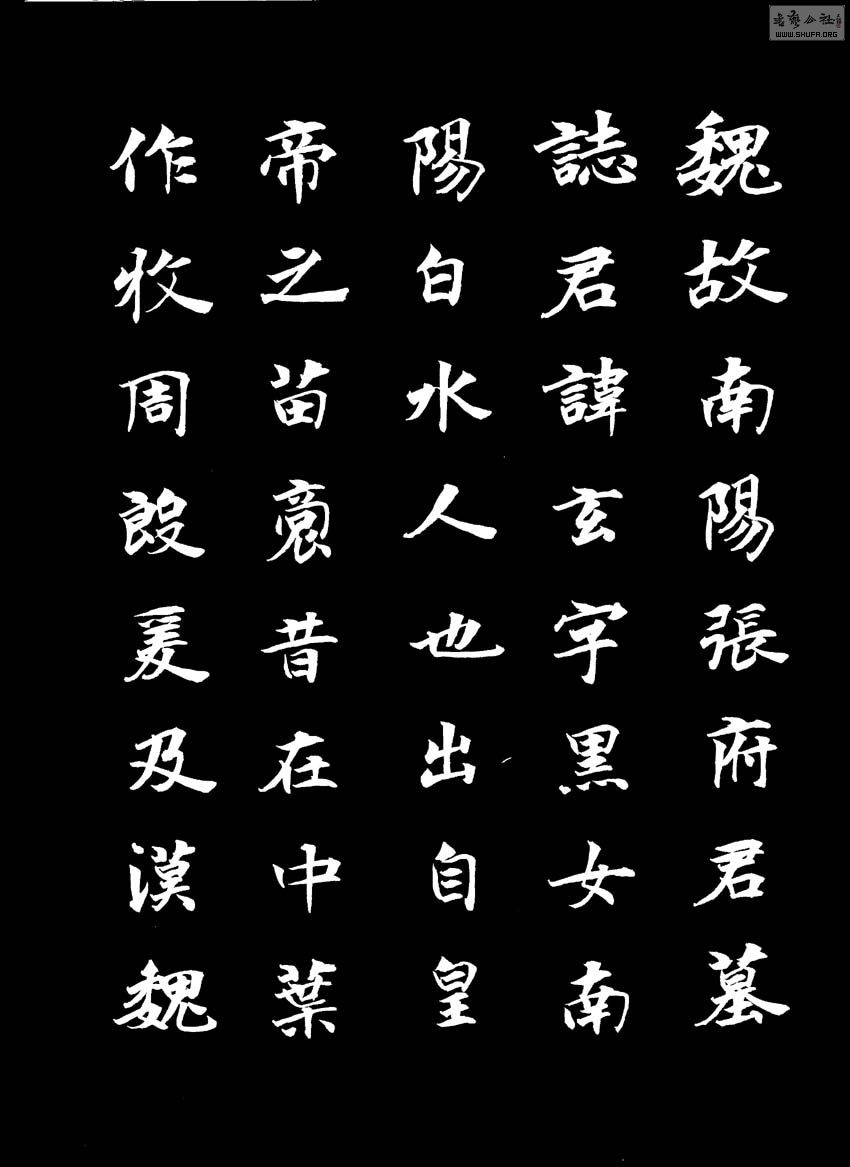 魏故南陽張府君墓
誌君諱玄字黑女南
陽白水人也出自皇
帝之苗裔昔在中葉
作牧周殷爰及漢魏
書藝公社
WWW.SHUFA.ORG